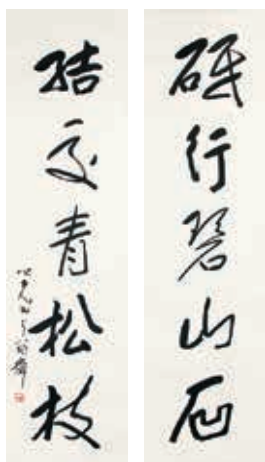 砥行碧山石
結交青松枝